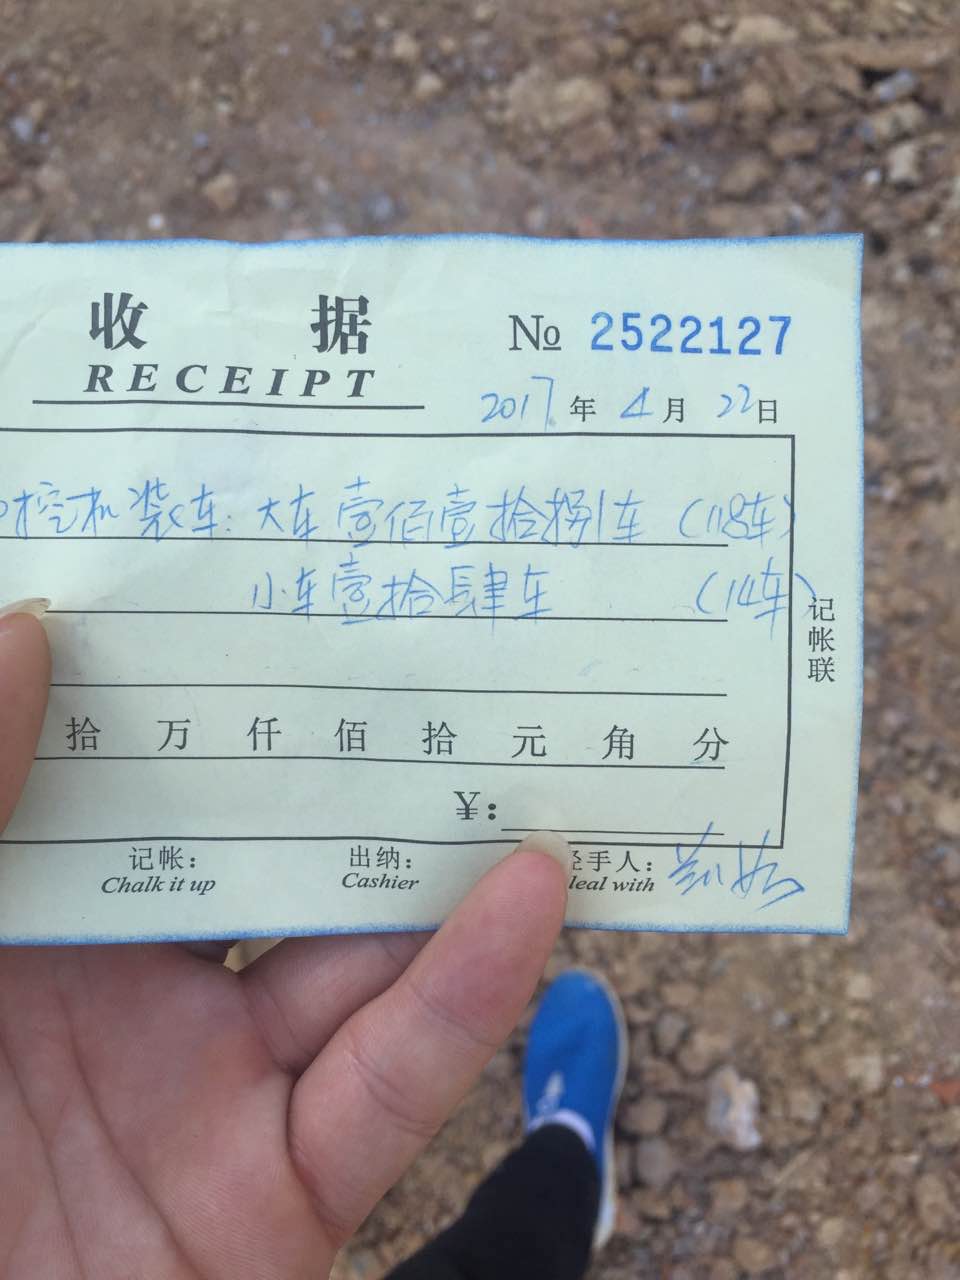 收 据
RECEIPT
№ 2522127
2017年4月22日
挖机装车：大车壹佰壹拾捌车（118车）
小车壹拾肆车（14车）
记帐联
拾 万 仟 佰 拾 元 角 分
¥：
记帐： 出纳： 经手人：
Chalk it up Cashier deal with